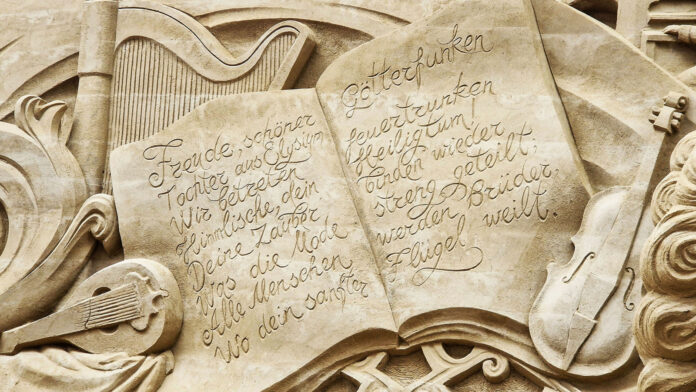 Freude, schöner
Tochter aus Elysium
Wir betreten
Himmlische, dein
Deine Zauber
Was die Mode
Alle Menschen
Wo dein sanfter
Götterfunken
feuertrunken
Heiligtum!
binden wieder
streng geteilt,
werden Brüder,
Flügel weilt.